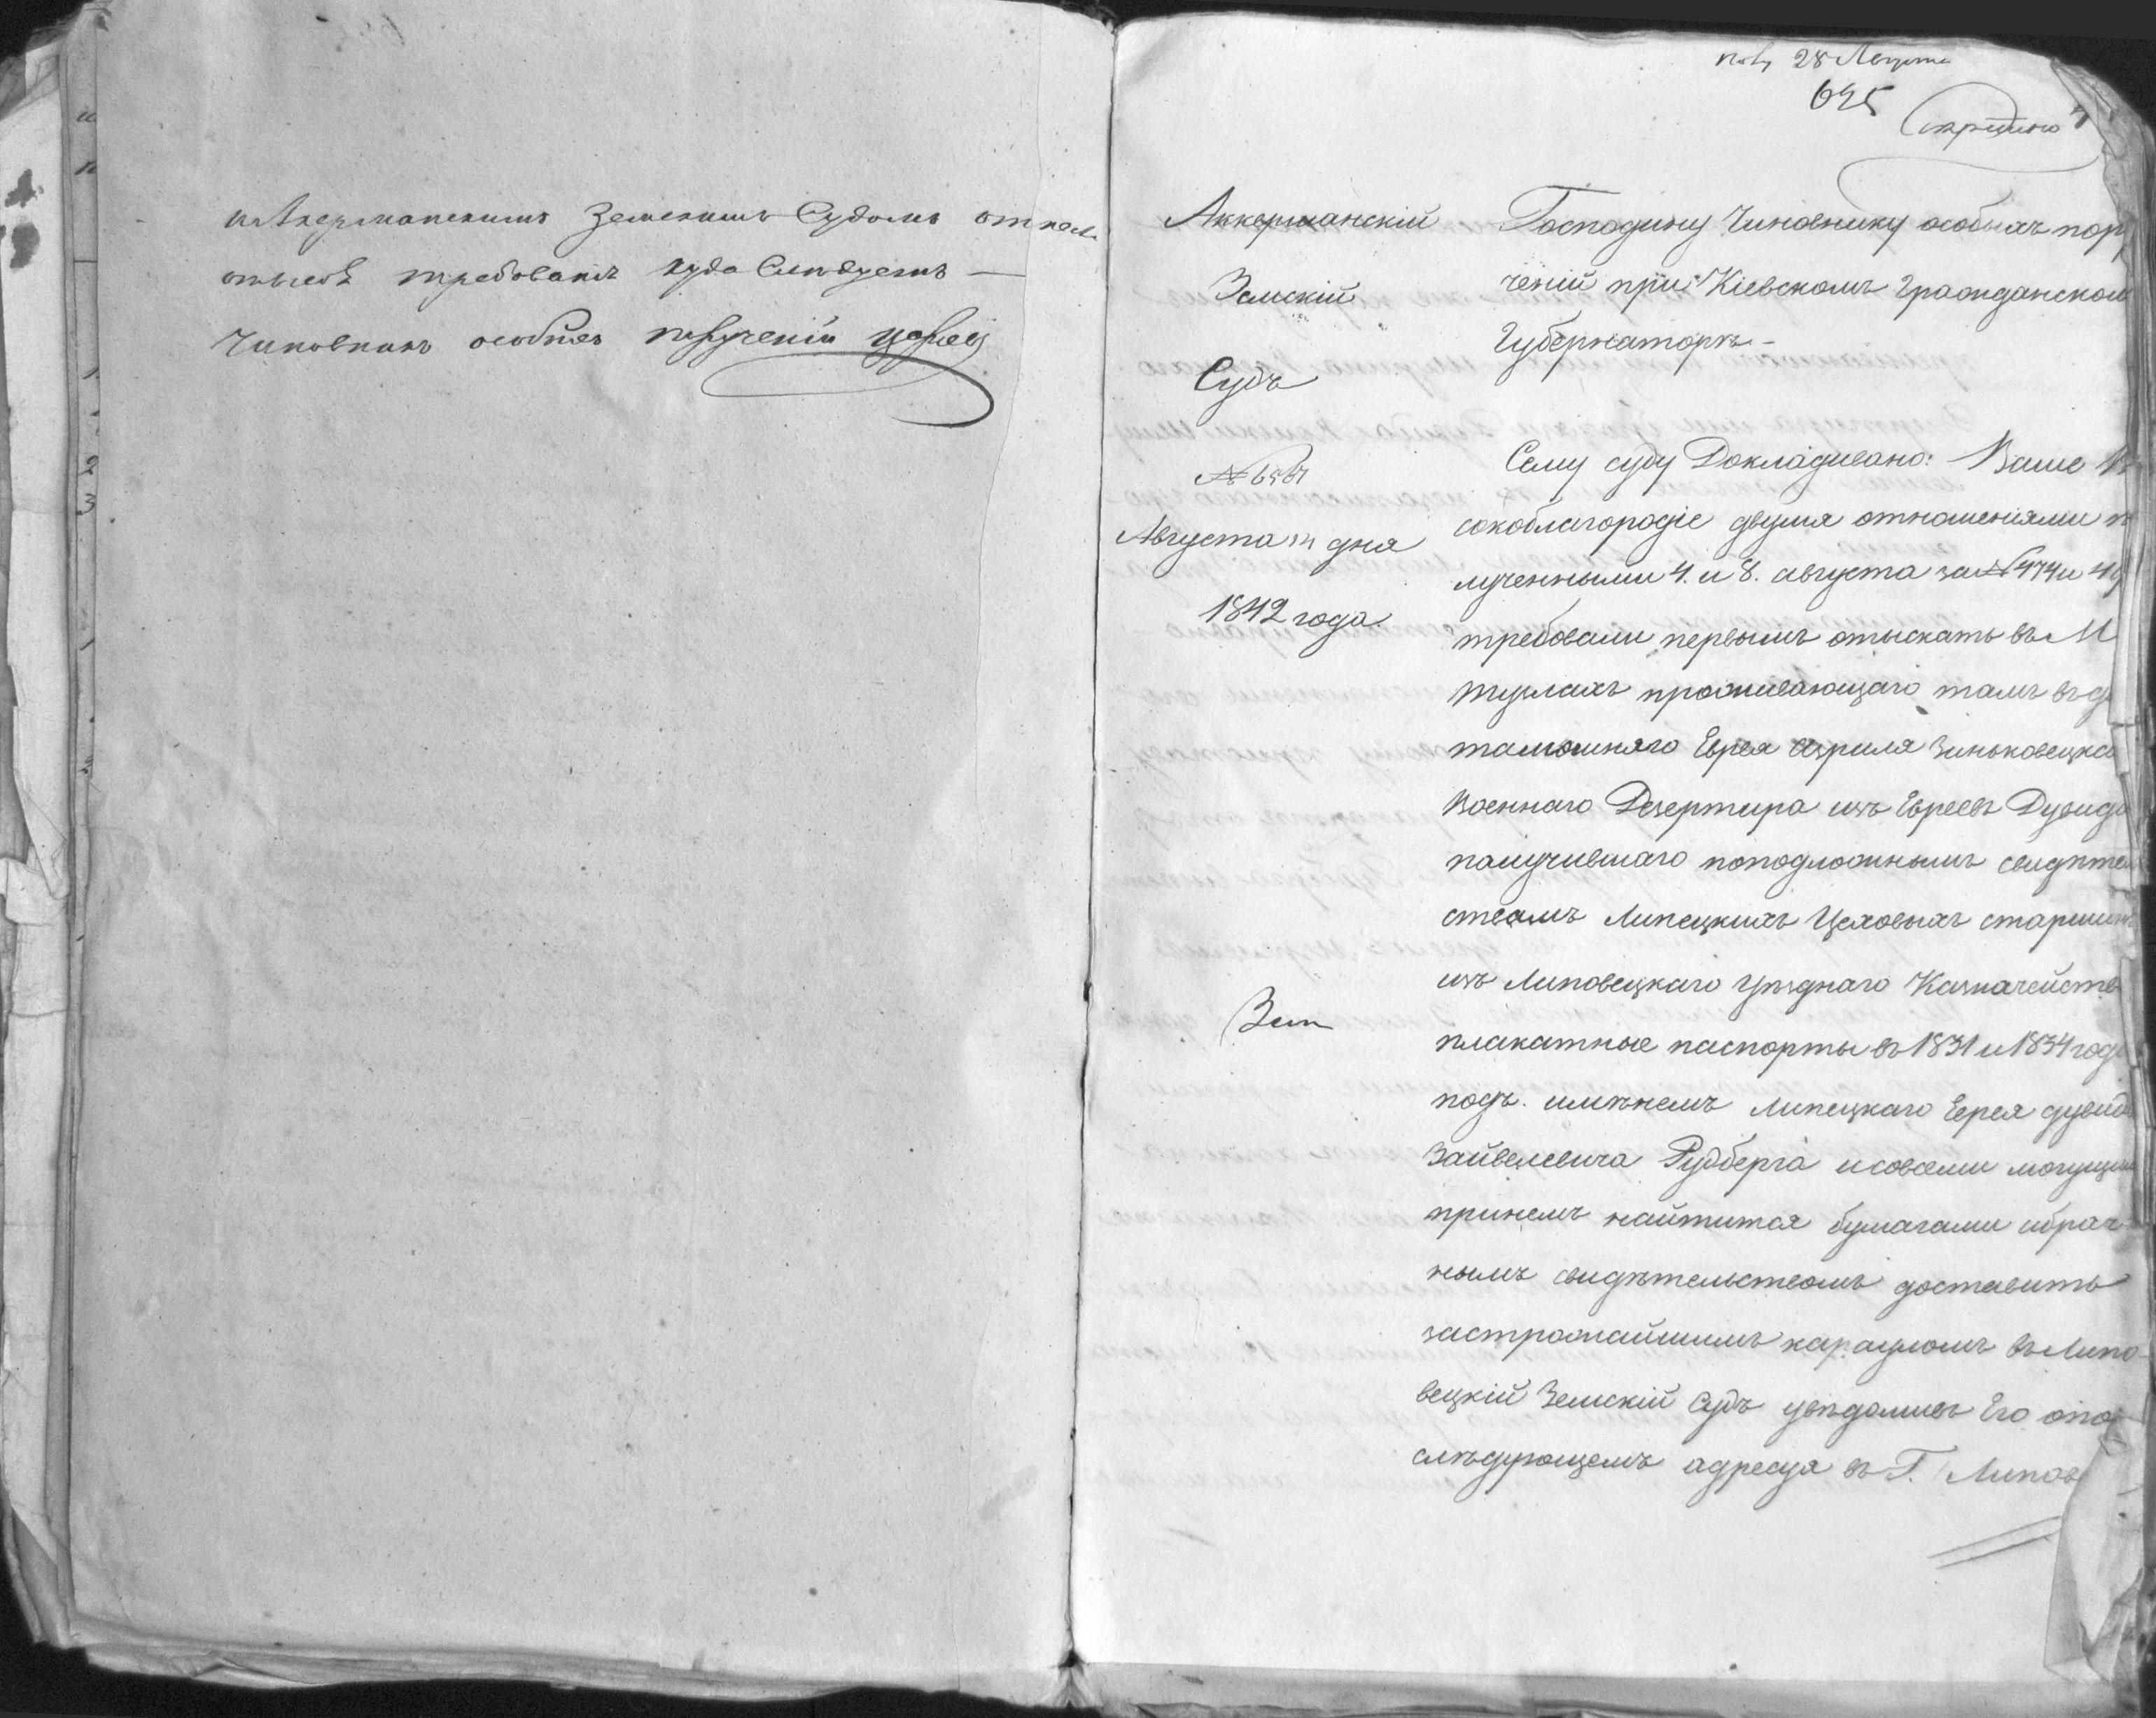 Аккерманскимъ Земскимъ Судомъ
требованія куда Слѣдуетъ —
Чиновникъ особыхъ порученій
28 Августа
695
Аккерманскій
Земскій
Судъ
№
Августа дня
1842 года.
Господину Чиновнику особыхъ пору
ченій при Кіевскомъ Гражданском
Губернаторѣ –
Сему суду Докладивано: Ваше
сокоблагородіе двумя отношеніями п
лученными 4. и 8. августа за №
требовали первымъ отыскать въ
проживающаго тамъ въ
тамошняго Еврея Зиньковецка
Военнаго Дезертира изъ Евреевъ Дувида
палучившаго поподложнымъ свидѣтел
ствамъ Липецкихъ Цеховыхъ старшин
изъ Липовецкаго Уѣзднаго Казначейств
плакатные паспорты въ 1831 и 1834 год
подъ. имѣнемъ Липецкаго Еврея дувид
Зайвелевича Рудберга исовсеми могущим
принемъ найтится бумагами ибрач
нымъ свидѣтельствомъ доставить
застрожайшимъ карауломъ въ Липо
вецкій Земскій Судъ увѣдомивъ Его опо
слѣдующемъ адресуя въ Г. Липов